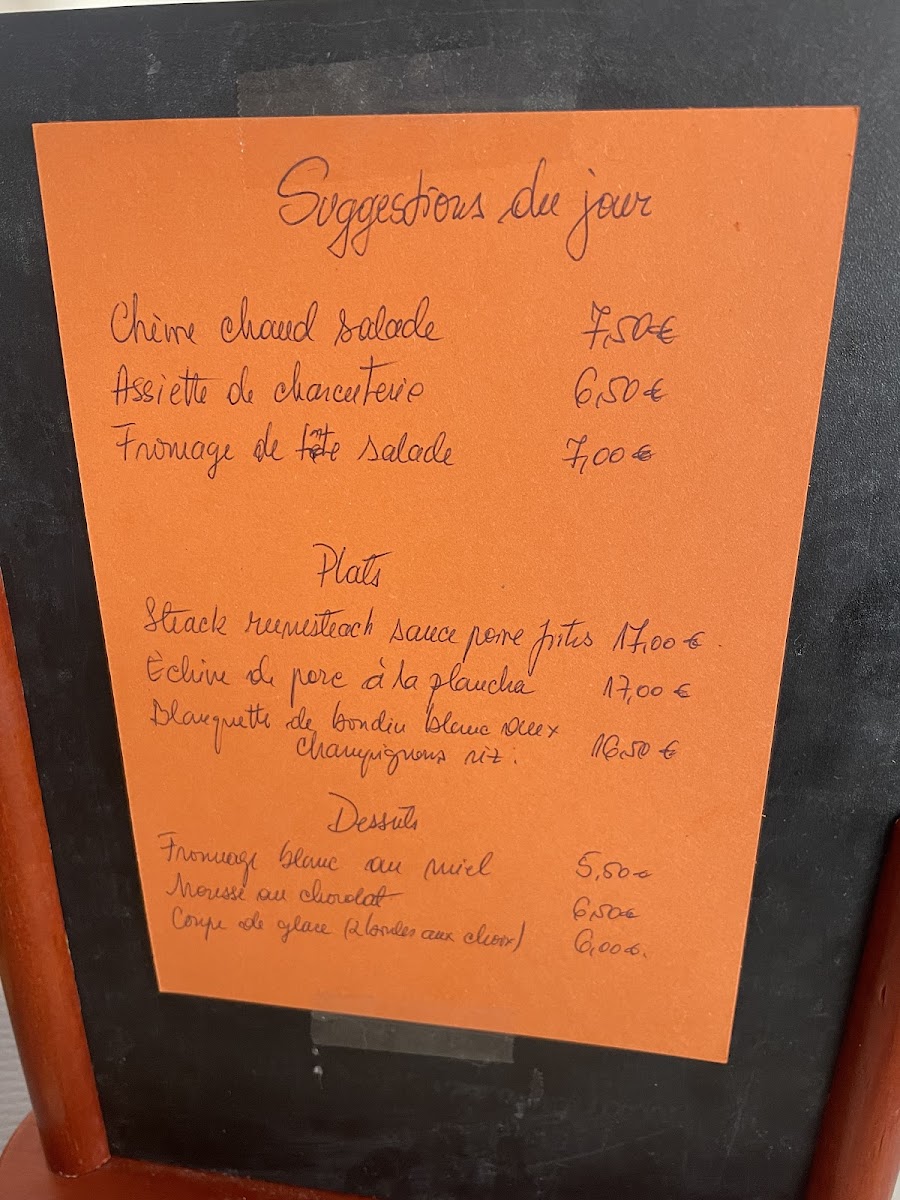 Suggestions du jour
Chèvre chaud salade 7,50€
Assiette de charcuterie 6,50€
Fromage de tête salade 7,00€
Plats
Steack rumsteack sauce poivre frites 17,00€.
Échine de porc à la plancha 17,00€
Blanquette de boudin blanc aux
champignons riz. 16,50€
Desserts
Fromage blanc au miel 5,50€
Mousse au chocolat 6,50€
Coupe de glace (2 boules aux choix) 6,00€.